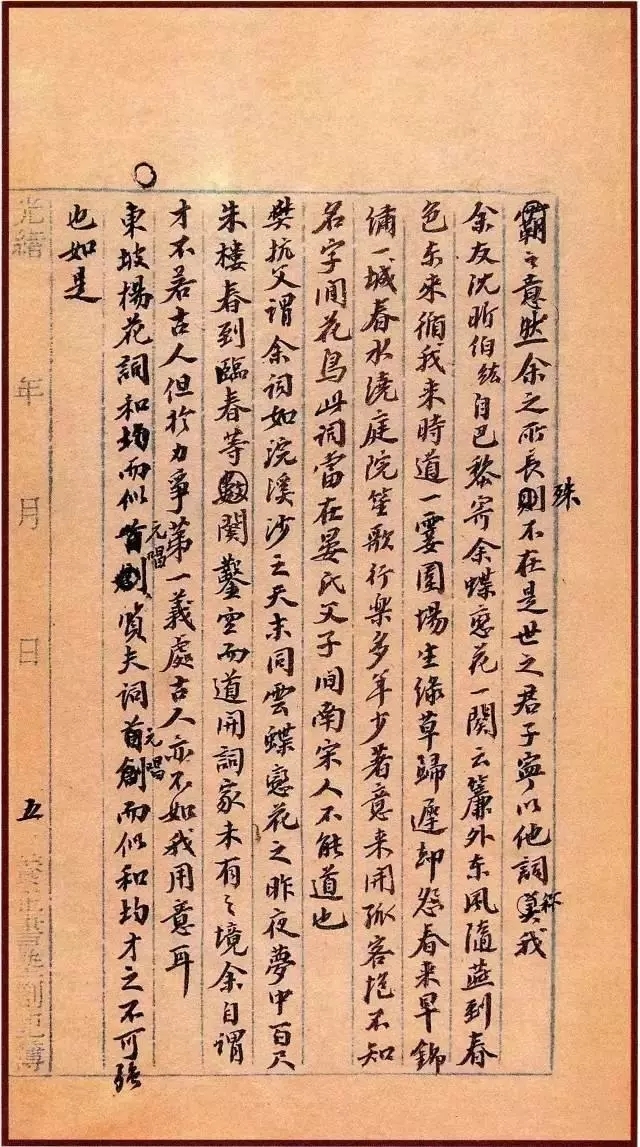 霸之意然余之所長則不在是世之君子寧以他詞美我
殊
称
余友沈昕伯紘自巴黎寄余蝶戀花一闋云簾外東風隨燕到春
色東來循我來時道一霎圍場生綠草歸遲却怨春來早錦
繡一城春水澆庭院笙歌行樂多年少著意來開孤客抱不知
名字閒花鳥此詞當在晏氏父子間南宋人不能道也
樊抗父謂余詞如浣溪沙之天末同雲蝶戀花之昨夜夢中百尺
朱樓春到臨春等數闋鑿空而道開詞家未有之境余自謂
才不若古人但於力爭第一義處古人亦不如我用意耳
東坡楊花詞和均而似首創質夫詞首創而似和均才之不可強
元唱
元唱
也如是
光緒 年 月 日 五